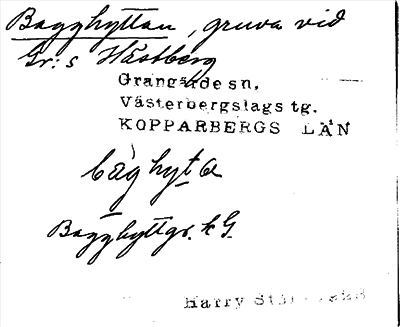 Bagghyttan, gruva vid
Gr:s Hästberg
Grangärde sn,
Västerbergslags tg.
KOPPARBERGS LÄN
bàghyta
Bagghyttgr. k G.
Harry